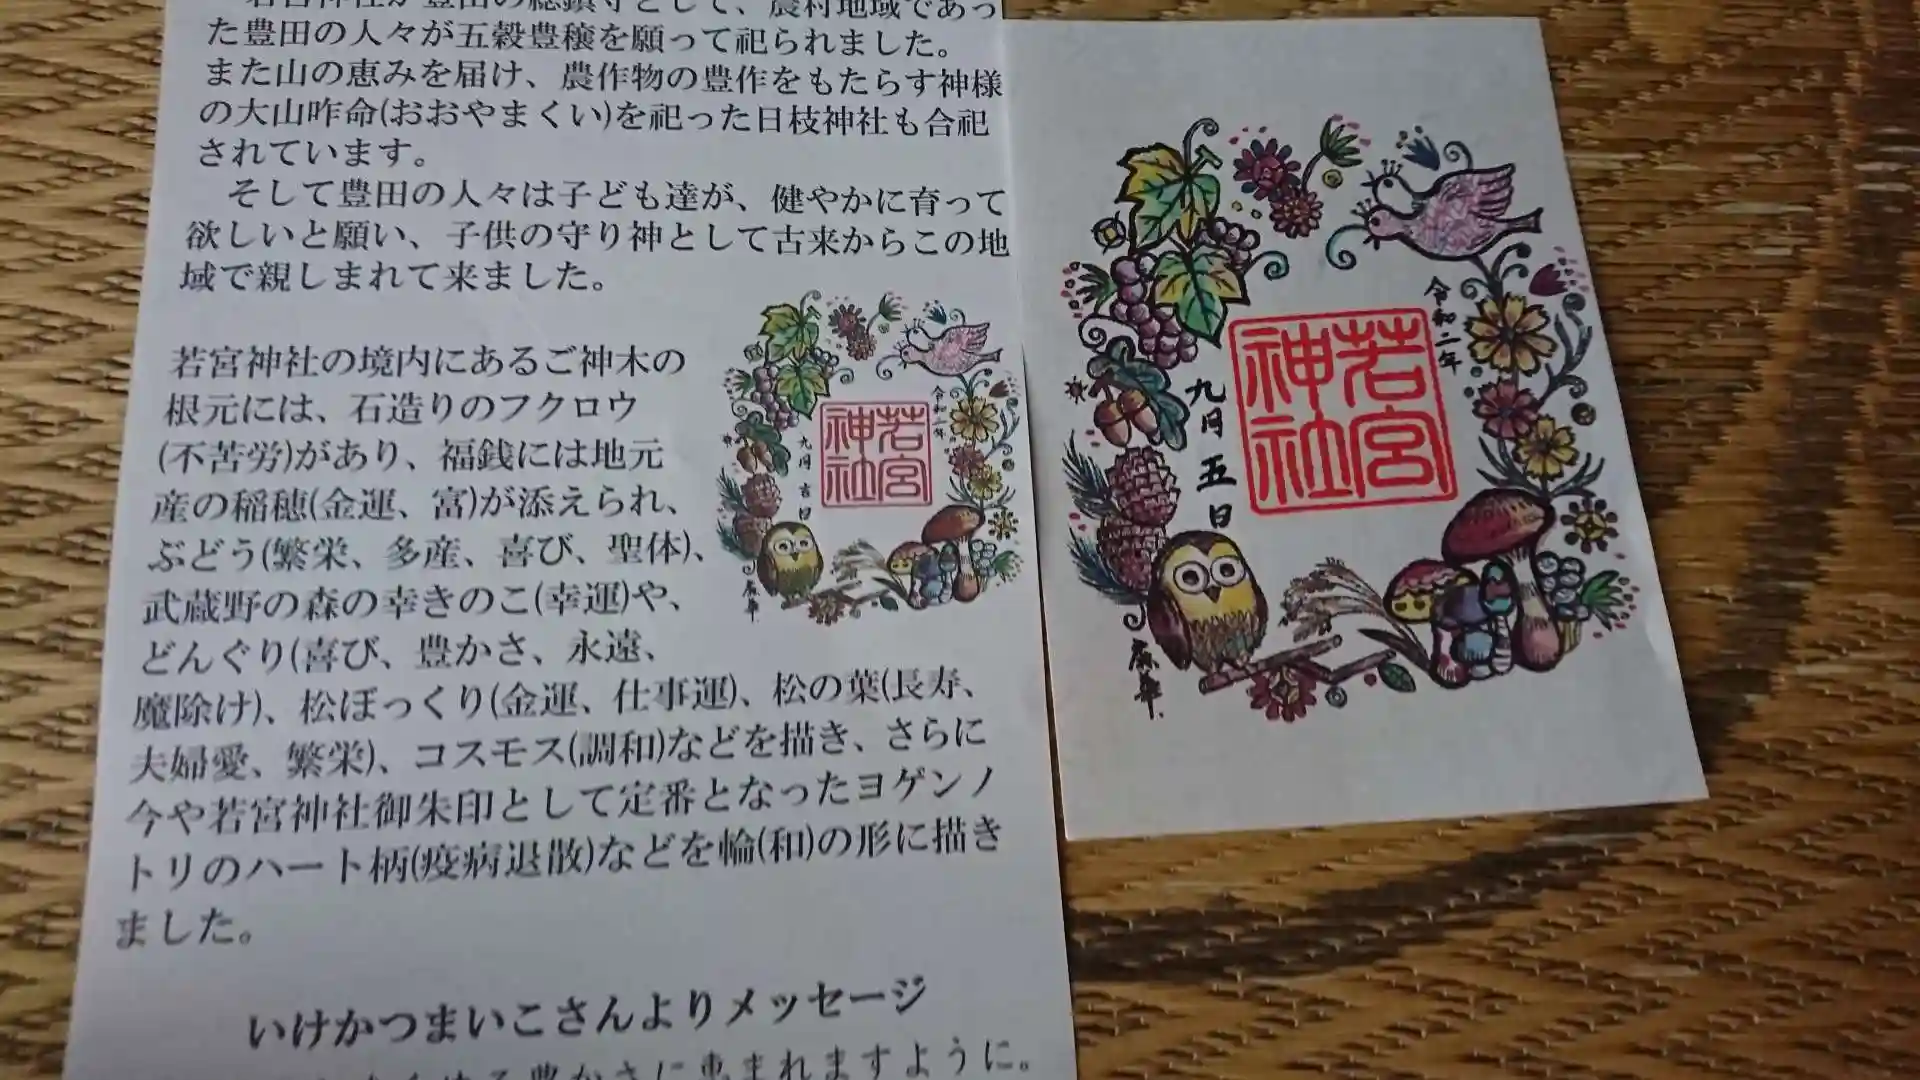 若宮神社が豊田の総鎮守として、農村地域であっ
た豊田の人々が五穀豊穣を願って祀られました。
また山の恵みを届け、農作物の豊作をもたらす神様
の大山咋命(おおやまくい)を祀った日枝神社も合祀
されています。
そして豊田の人々は子ども達が、健やかに育って
欲しいと願い、子供の守り神として古来からこの地
域で親しまれて来ました。
若宮神社の境内にあるご神木の
根元には、石造りのフクロウ
(不苦労)があり、福銭には地元
産の稲穂(金運、富)が添えられ、
ぶどう(繁栄、多産、喜び、聖体)、
武蔵野の森の幸きのこ(幸運)や、
どんぐり(喜び、豊かさ、永遠、
魔除け)、松ぼっくり(金運、仕事運)、松の葉(長寿、
夫婦愛、繁栄)、コスモス(調和)などを描き、さらに
今や若宮神社御朱印として定番となったヨゲンノ
トリのハート柄(疫病退散)などを輪(和)の形に描き
ました。
いけかつまいこさんよりメッセージ
豊かさに恵まれますように。
令和二年
若宮
神社
九月吉日
麻華
令和二年
若宮
神社
九月五日
麻華